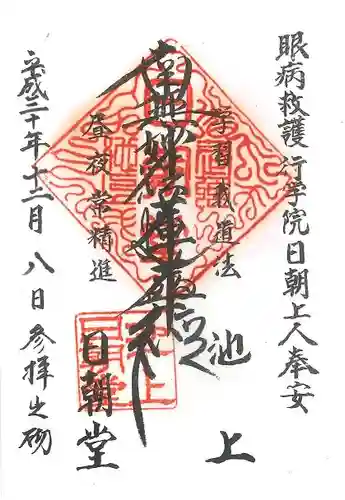 眼病救護行学院日朝上人奉安
学習我道法
南無妙法蓮華経
昼夜常精進
池上
日朝堂
平成三十年十二月八日参拝之砌